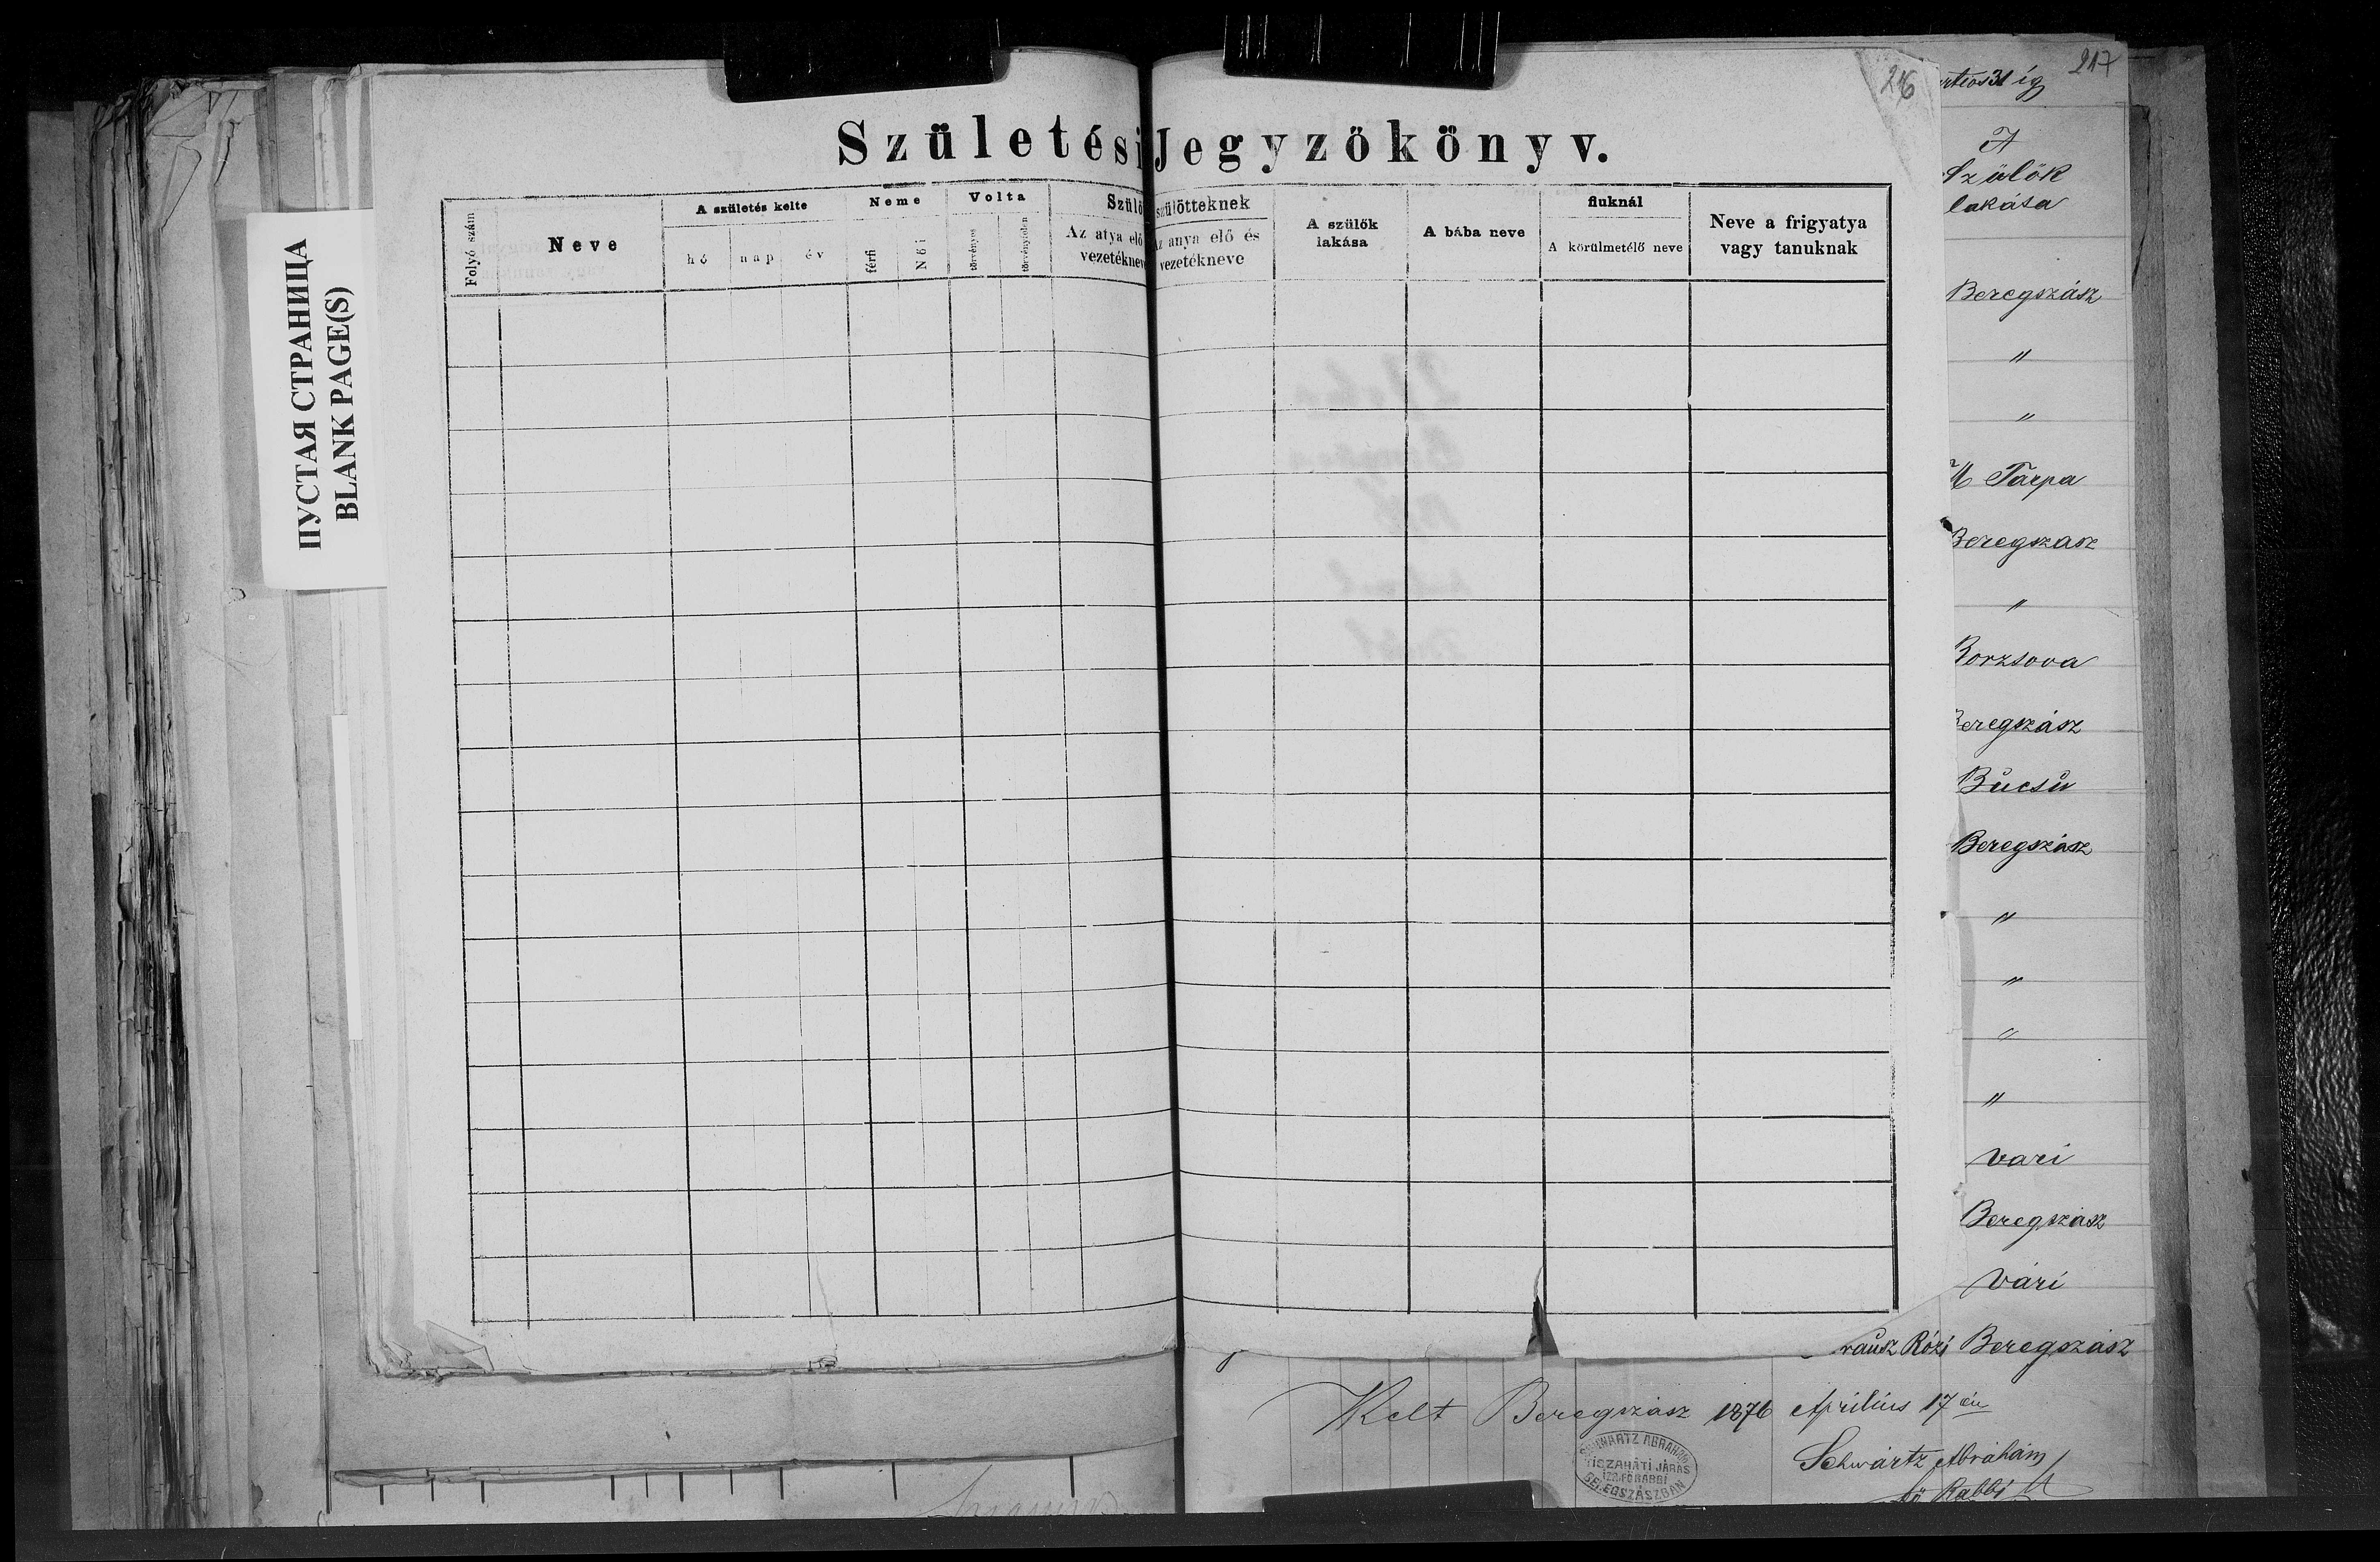 ПУСТАЯ СТРАНИЦА
BLANK PAGE(S)
216
217
Születési Jegyzőkönyv.
Folyó szám
Neve
A születés kelte
hó
nap
év
Neme
férfi
Női
Volta
törvényes
törvénytelen
Szülő szülötteknek
Az atya elő
vezetékneve
Az anya elő és
vezetékneve
A szülők
lakása
A bába neve
fiuknál
A körülmetélő neve
Neve a frigyatya
vagy tanuknak
31 ig
A
Szülők
lakása
Beregszász
"
"
M Tarpa
Beregszasz
"
Borzsova
Beregszász
Bucsu
Beregszász
"
"
"
"
Vari
Beregszász
Vári
Rózi Beregszász
Kelt Beregszász 1876 Aprilius 17 én
Schwártz Abrahám
fő Rabbi
SCHWARTZ ABRAHÁM
TISZAHÁTI JÁRÁS
IZR. FŐRABBI
BEREGSZÁSZBAN